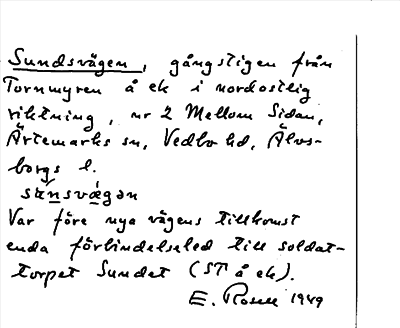 Sundsvägen, gångstigen från
Tornmyren å ek i nordostlig
riktning, nr 2 Mellom Sidan,
Ärtemarks sn, Vedbo hd, Älvs-
borgs l.
sán̲svæ̲gən
Var före nya vägens tillkomst
enda förbindelseled till soldat-
torpet Sundet (ST å ek).
E. Rosell 1949